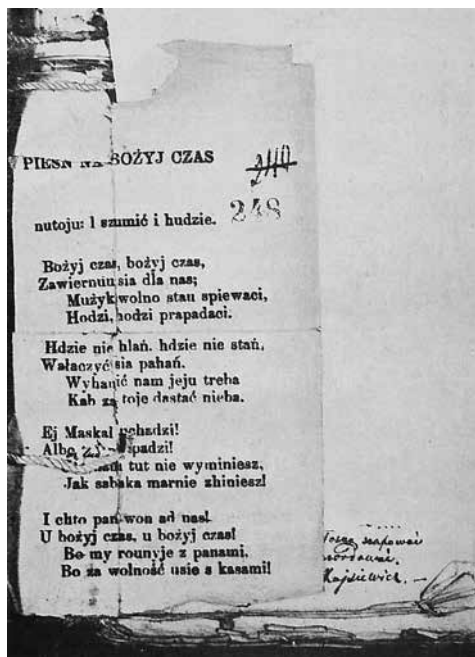 PIESŃ NA BOŻYJ CZAS
248
nutoju: I szumić i hudzie.
Bożyj czas, bożyj czas,
Zawiernuusia dla nas;
Mużyk wolno stau spiewaci,
Hodzi, hodzi prapadaci.
Hdzie nie hlań, hdzie nie stań,
Wałaczyć sia pahań.
Wyhanić nam jeju treba
Kab za toje dastać nieba.
Ej Maskal uchadzi!
Albo
tut nie wyminiesz,
Jak sabaka marnie zhiniesz!
I chto pan won ad nas!
U bożyj czas, u bożyj czas!
Bo my rounyje z panami,
Bo za wolność usie s kasami!